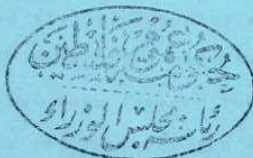 حكومة عموم فلسطين
رئاسة مجلس الوزراء